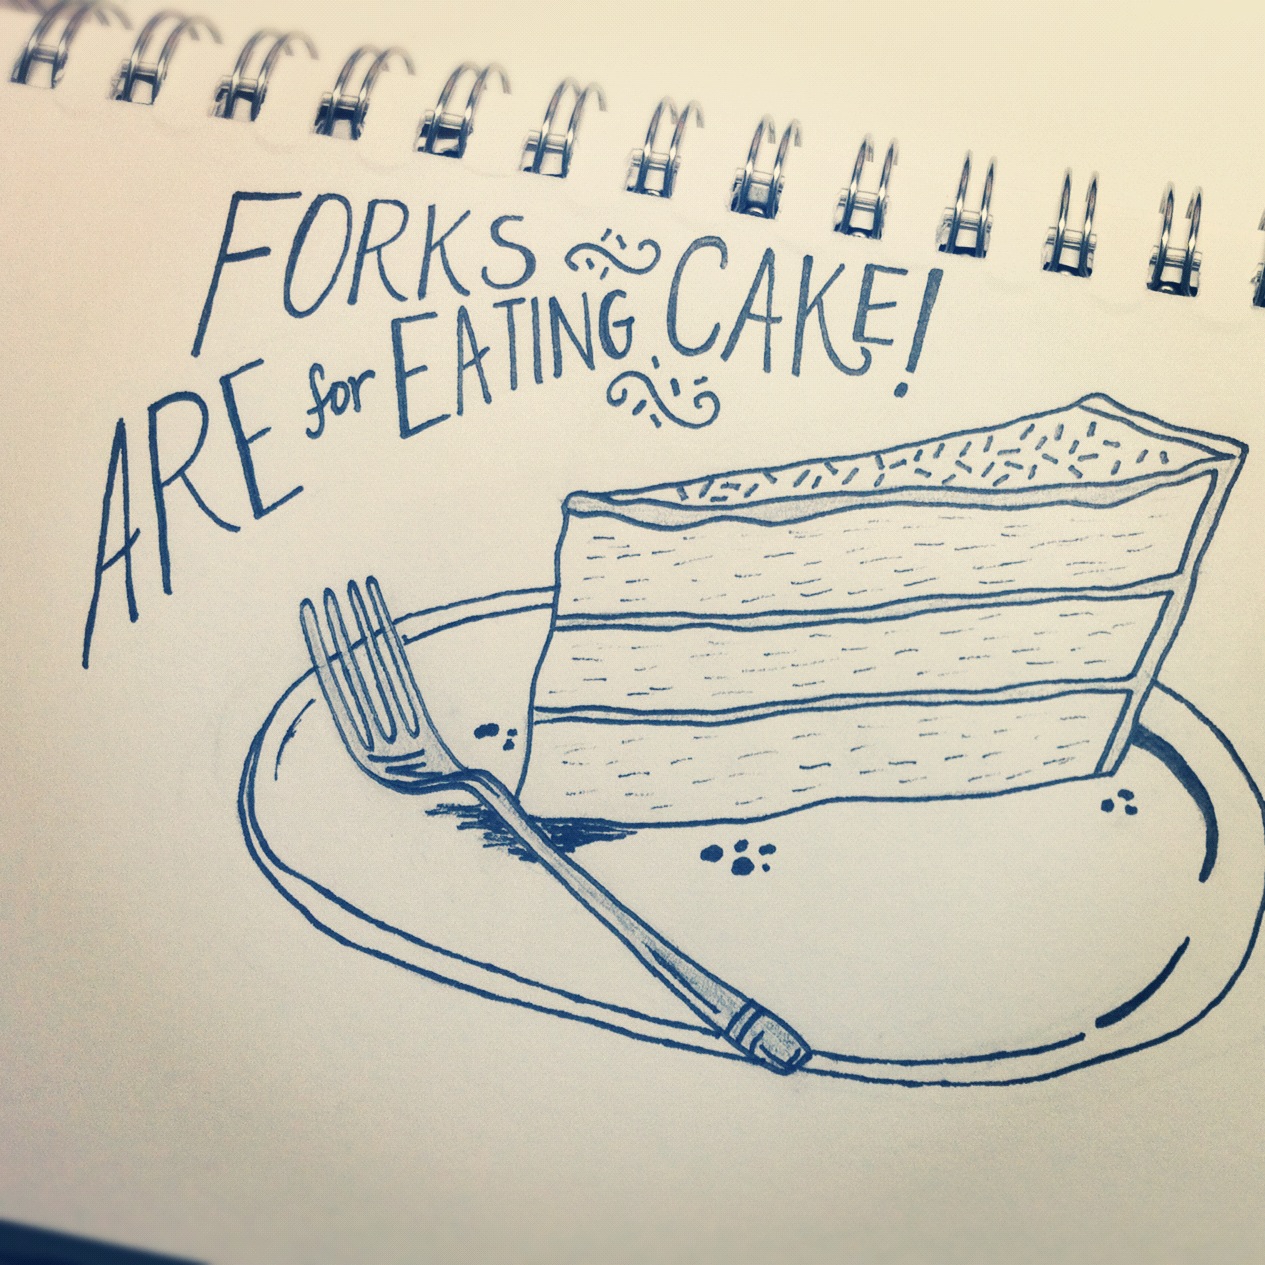 FORKS
ARE for EATING CAKE!